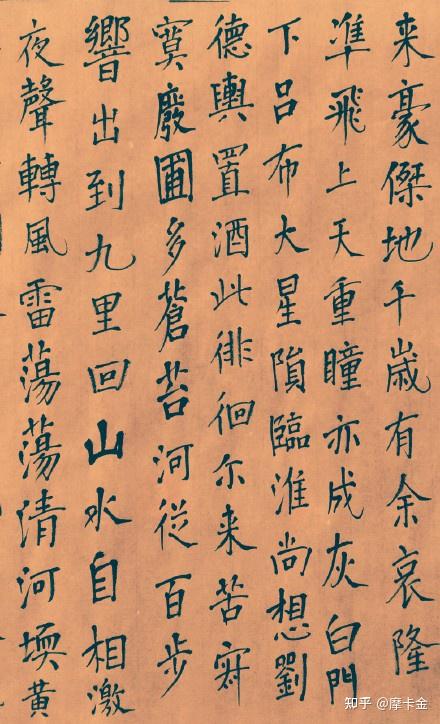 来豪傑地千歲有余哀隆
準飛上天重瞳亦成灰白門
下吕布大星隕臨淮尚想劉
德輿置酒此徘徊尔来苦寂
寞廢圃多蒼苔河從百步
響出到九里回山水自相激
夜聲轉風雷蕩蕩清河壖黃
知乎 @摩卡金